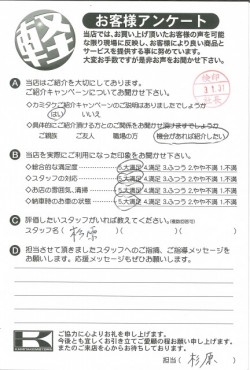 軽
お客様アンケート
当店では、お買い上げ頂いたお客様の声を可能
な限り現場に反映し、お客様により良い商品と
サービスを提供する事に努めています。
大変お手数ですが是非お声をお聞かせ下さい。
3.1.31
A 当店はご紹介を大切にしております。
ご紹介キャンペーンについてお聞かせ下さい。
◇カミタケご紹介キャンペーンのご説明はありましたでしょうか
はい いいえ
◇具体的にご紹介頂ける方とのご関係をお聞かせ頂けますでしょうか
ご親族 ご友人 職場の方 機会があれば紹介したい
B 当店を実際にご利用になった印象をお聞かせ下さい。
◇総合的な満足度 5.大満足 4.満足 3.ふつう 2.やや不満 1.不満
◇スタッフの対応 5.大満足 4.満足 3.ふつう 2.やや不満 1.不満
◇お店の雰囲気、清掃 5.大満足 4.満足 3.ふつう 2.やや不満 1.不満
◇納車時のお車の状態 5.大満足 4.満足 3.ふつう 2.やや不満 1.不満
C 評価したいスタッフがいれば教えてください。(複数回答可)
スタッフ名( 杉原 )( )( )
D 担当させて頂きましたスタッフへのご指摘、ご指導メッセージを
お願いします。応援メッセージもぜひお願いします。
K
ご協力に心よりお礼を申し上げます。
今後とも宜しくお引き立てご愛顧の程お願い申し上げます。
またのご来店を心からお待ちしております。
担当( 杉原 )